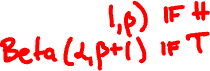 1,β) IF H
Beta(α,β+1) IF T